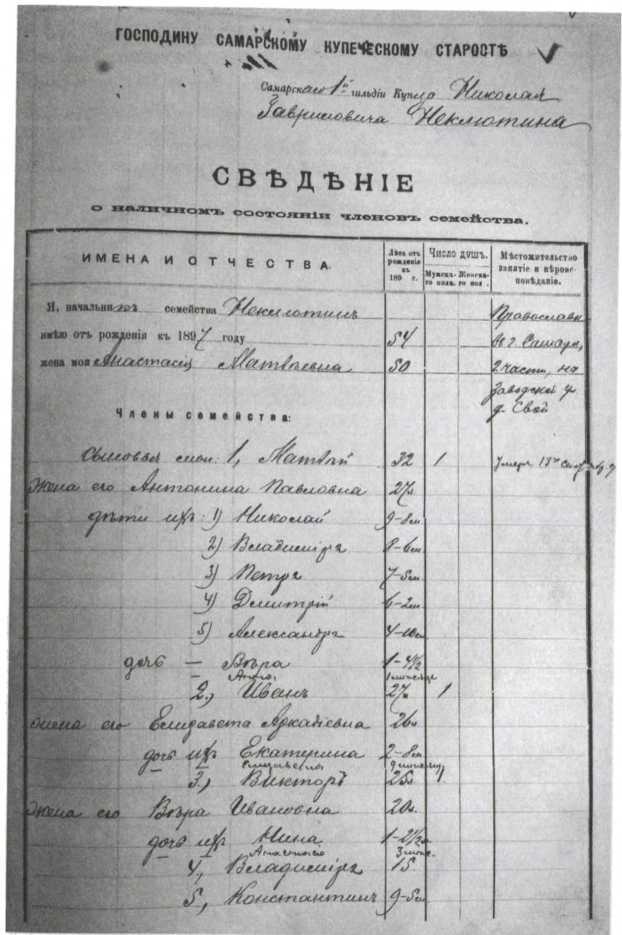 ГОСПОДИНУ САМАРСКОМУ КУПЕЧЕСКОМУ СТАРОСТѢ
Самарскаго 1й гильдіи Купца Николая
Гавриловича Неклютина
СВѢДѢНІЕ
о наличномъ состояніи членовъ семейства.
ИМЕНА И ОТЧЕСТВА.
Лѣта отъ рожденія къ 189 г.
Число душъ.
Мужска-го пола.
Женска-го пол.
Мѣстожительство занятіе и вѣроис-повѣданіе.
Я, начальникъ семейства Неклютинъ
имѣю отъ рожденія къ 1897 году 54
жена моя Анастасія Матвѣевна 50
Православн
въ г. Самарѣ,
2 части, на
Заводской у
д. Свой
Члены семейства:
сыновья мои: 1, Матвѣй 32 1 Умеръ
жена его Антонина Павловна 27
дѣти ихъ: 1) Николай 9-8м
2) Владиміръ 8-6м
3) Петръ 7-5м
4) Дмитрій 6-2м
5) Александръ 4-10м
дочь — Вѣра 1-4½
— Анна 1 мѣсяцъ
2, Иванъ 27 1
жена его Елизавета Аркадіевна 26
дочь ихъ Екатерина 2-8м
— Елизавета
3, Викторъ 25 1
жена его Вѣра Ивановна 20
дочь ихъ Нина 1-2½
— 3 мѣс.
4, Владиміръ 15
5, Константинъ 9-5м